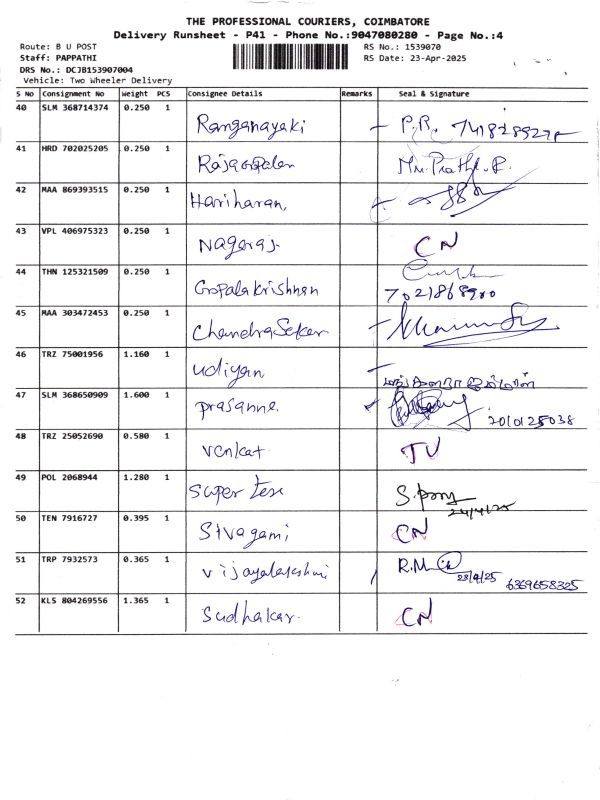 THE PROFESSIONAL COURIERS, COIMBATORE
Delivery Runsheet - P41 - Phone No.:9047080280 - Page No.:4
Route: B U POST
RS No.: 1539070
Staff: PAPPATHI
RS Date: 23-Apr-2025
DRS No.: DCJB153907004
Vehicle: Two Wheeler Delivery
S No Consignment No Weight PCS Consignee Details Remarks Seal & Signature
40 SLM 368714374 0.250 1 Ranganayaki P.R.
41 HRD 702025205 0.250 1 Rajagopalan
42 MAA 869393515 0.250 1 Hariharan
43 VPL 406975323 0.250 1 Nagaraj CN
44 THN 125321509 0.250 1 Gopalakrishnan
7021868900
45 MAA 303472453 0.250 1 ChandraSekar
46 TRZ 75001956 1.160 1 Udiyan
47 SLM 368650909 1.600 1 prasanna
2010125038
48 TRZ 25052690 0.580 1 Venkat TV
49 POL 2068944 1.280 1 Super Tex
24/4/25
50 TEN 7916727 0.395 1 Sivagami CN
51 TRP 7932573 0.365 1 Vijayalakshmi R.M
23/4/25 6369658325
52 KLS 804269556 1.365 1 Sudhakar CN